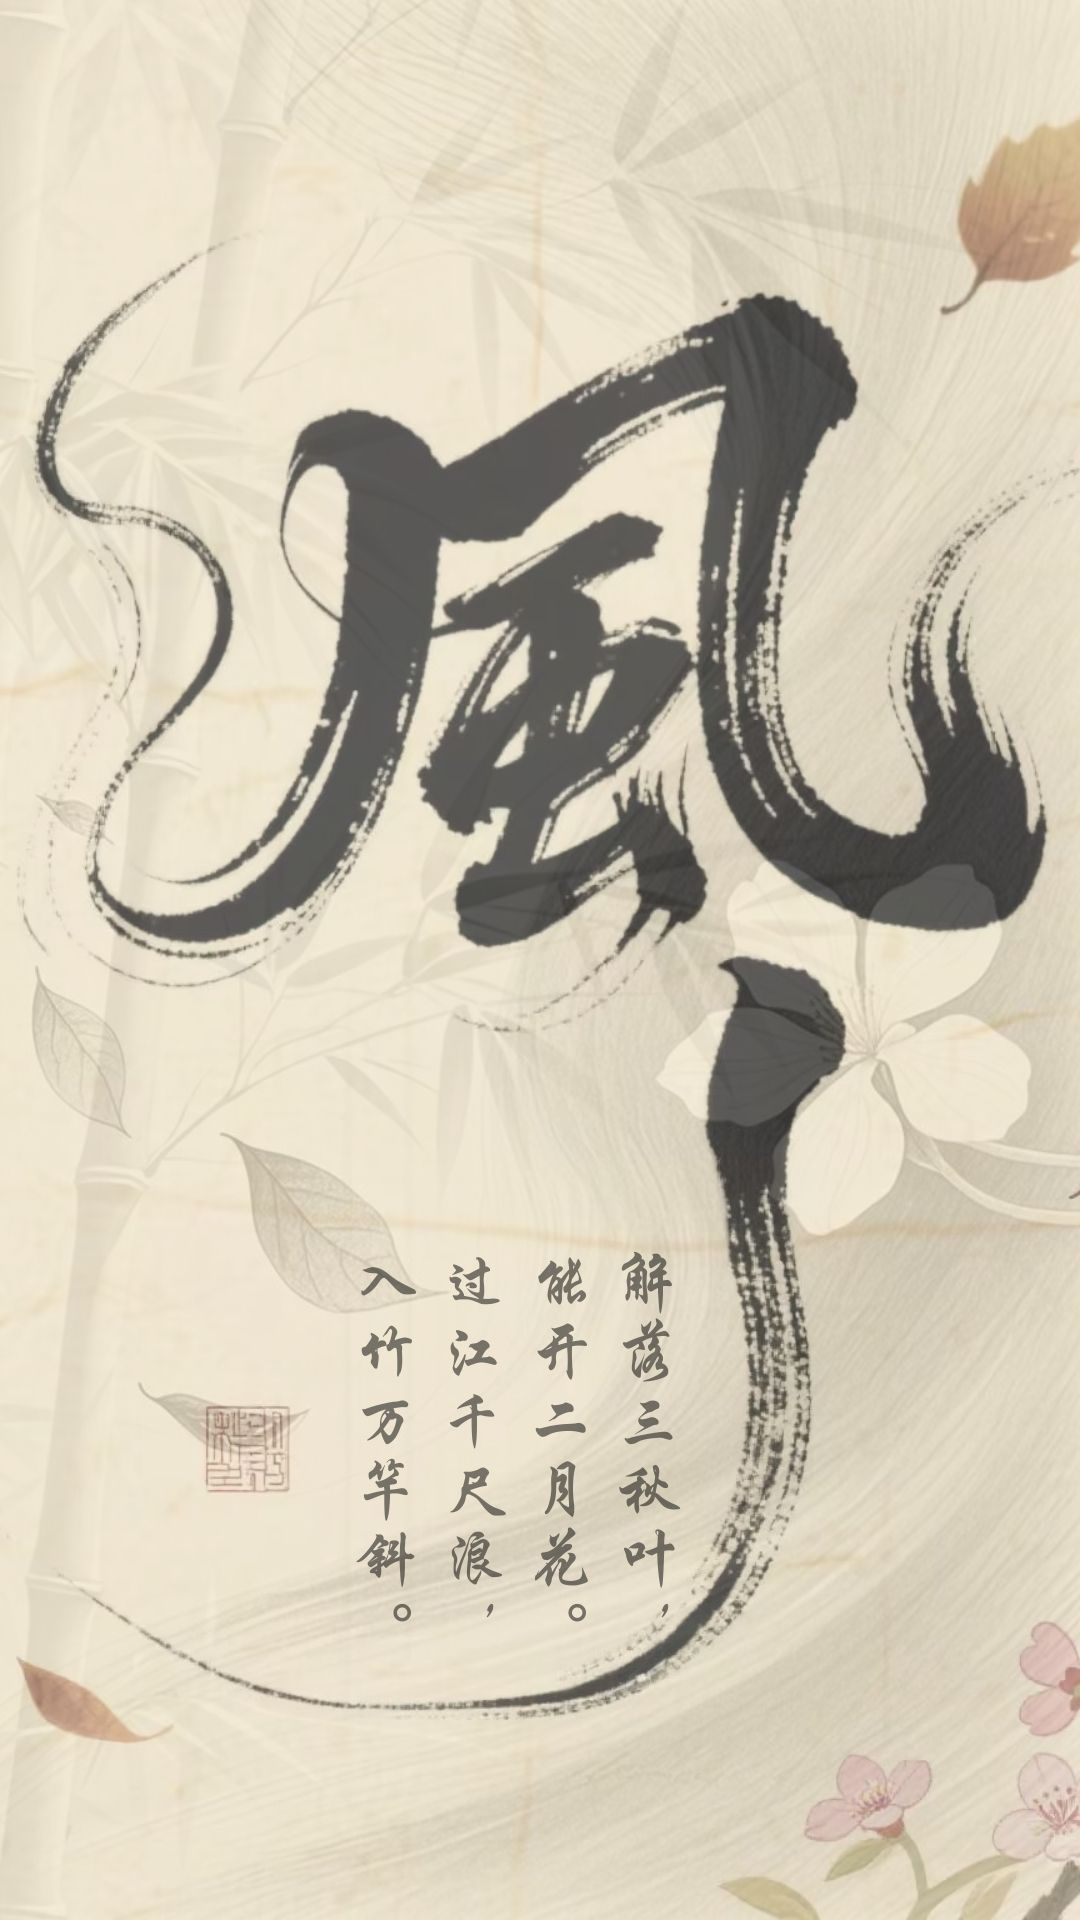 風
解落三秋叶，
能开二月花。
过江千尺浪，
入竹万竿斜。